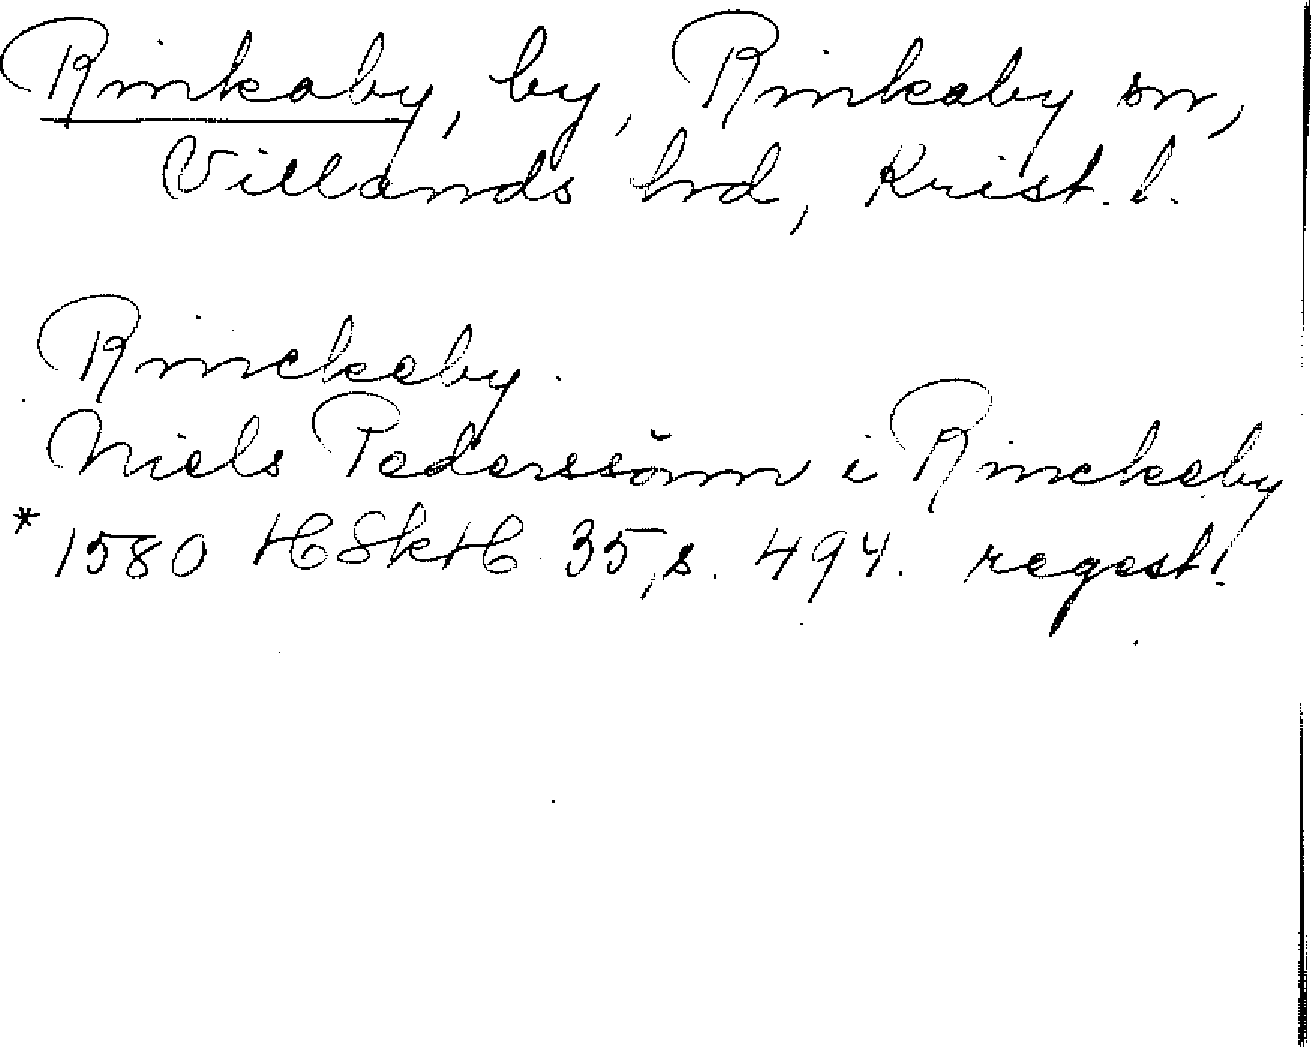 Rinkaby, by, Rinkaby sn,
Villands hd, Krist. l.
Rinckeby.
Niels Pederssönn i Rinckeby
* 1580 HSkH 35, s. 494. regest.